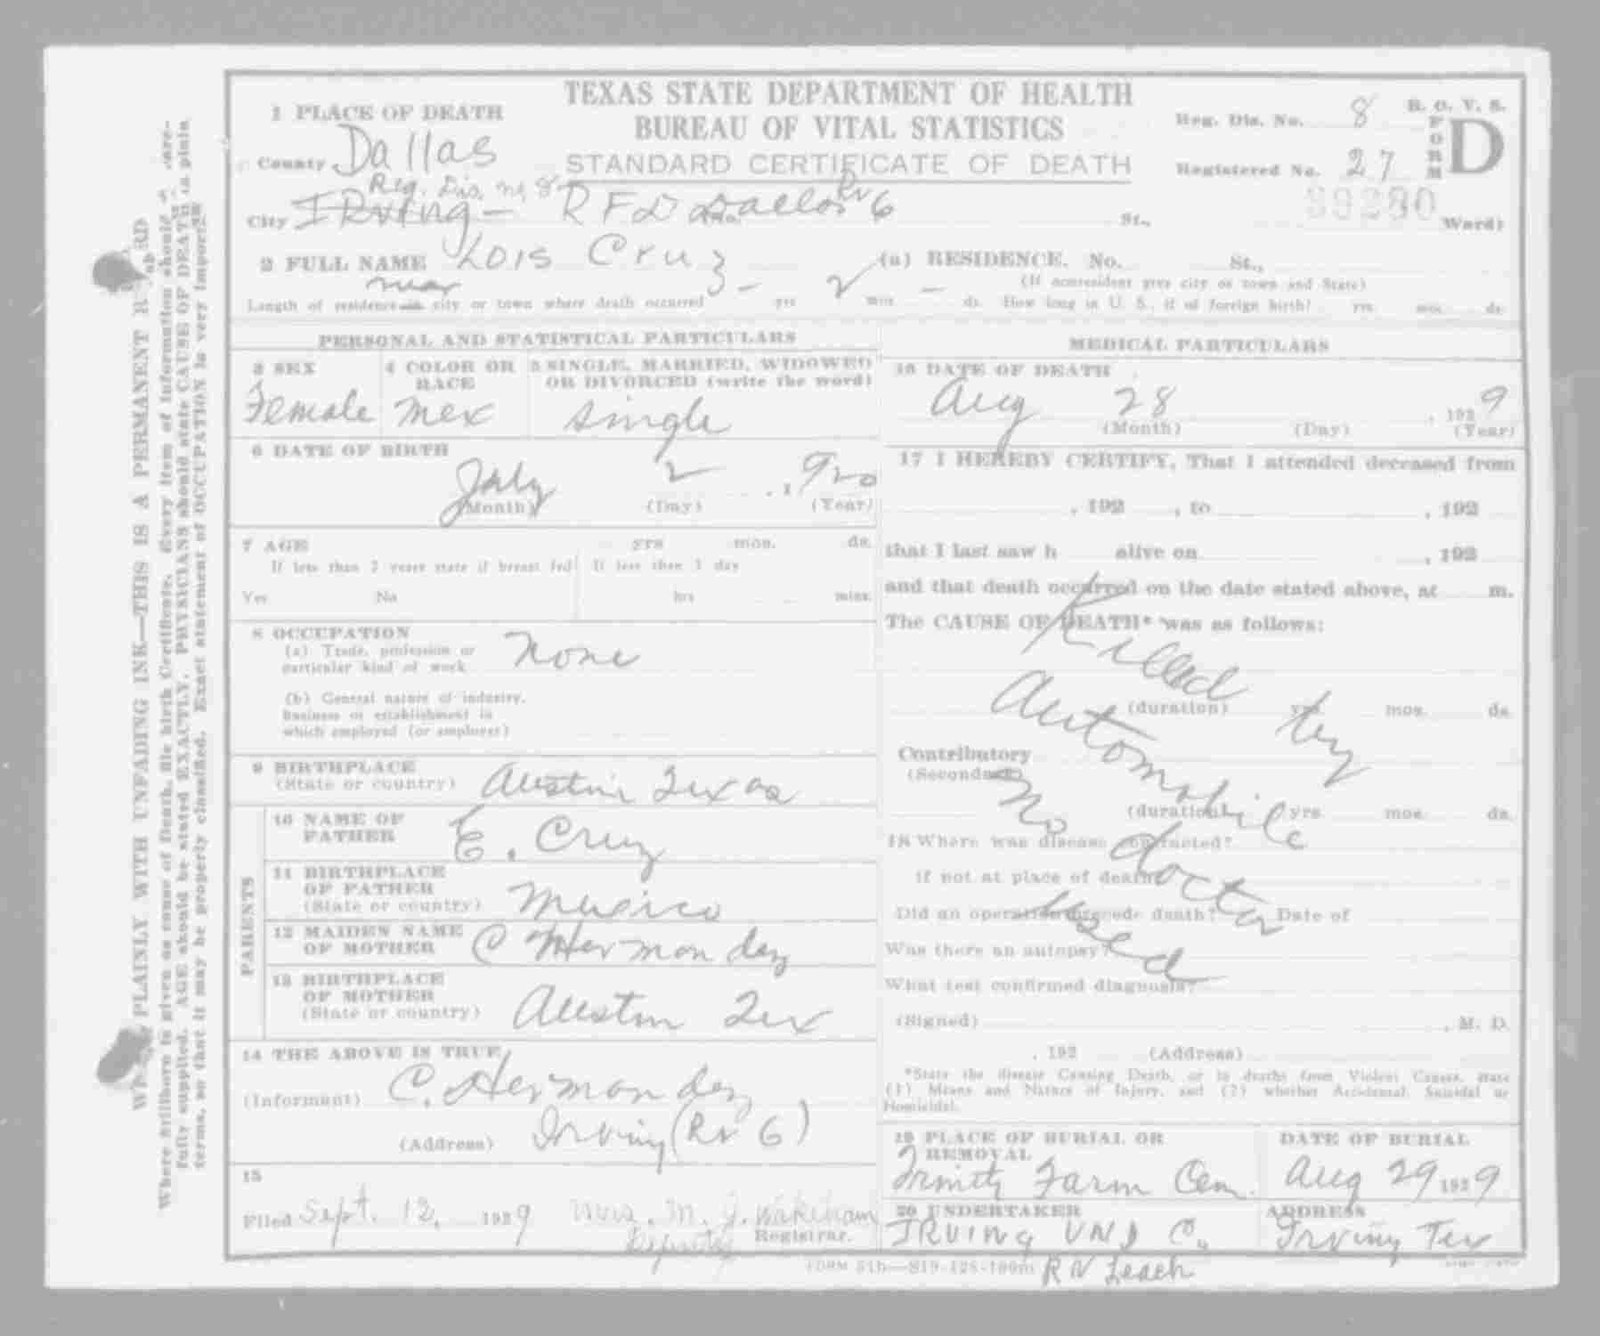 TEXAS STATE DEPARTMENT OF HEALTH
BUREAU OF VITAL STATISTICS
STANDARD CERTIFICATE OF DEATH
Reg. Dis. No. 8
Registered No. 27
B. O. V. S.
FORM D
1 PLACE OF DEATH
County Dallas
Reg. Dis. no. 8
City Irving — R F D Dallas Rt 6 St., Ward)
2 FULL NAME Lois Cruz (a) RESIDENCE. No. St.,
(If nonresident give city or town and State)
near
Length of residence in city or town where death occurred — yrs 2 mos. — ds. How long in U. S., if of foreign birth? yrs mos. ds.
PERSONAL AND STATISTICAL PARTICULARS
3 SEX
Female
4 COLOR OR RACE
Mex
5 SINGLE, MARRIED, WIDOWED
OR DIVORCED (write the word)
single
6 DATE OF BIRTH
July 2 , 1920
(Month) (Day) (Year)
7 AGE yrs mos. ds.
If less than 2 years state if breast fed If less than 1 day
Yes No hrs mins.
8 OCCUPATION
(a) Trade, profession or
particular kind of work None
(b) General nature of industry,
business or establishment in
which employed (or employer)
9 BIRTHPLACE
(State or country) Austin Texas
PARENTS
10 NAME OF
FATHER E. Cruz
11 BIRTHPLACE
OF FATHER
(State or country) Mexico
12 MAIDEN NAME
OF MOTHER C Hernandez
13 BIRTHPLACE
OF MOTHER
(State or country) Austin Tex
14 THE ABOVE IS TRUE,
(Informant) C. Hernandez
(Address) Irving (Rt 6)
15
Filed Sept. 12, 1929 Mrs. M. J. Wakeham
Deputy Registrar.
MEDICAL PARTICULARS
16 DATE OF DEATH
Aug 28 , 1929
(Month) (Day) (Year)
17 I HEREBY CERTIFY, That I attended deceased from
, 192 , to , 192
that I last saw h alive on , 192
and that death occurred on the date stated above, at m.
The CAUSE OF DEATH* was as follows:
Killed by
(duration) yrs mos. ds.
Automobile
Contributory
(Secondary)
(duration) yrs mos. ds.
No doctor
used
18 Where was disease contracted?
if not at place of death?
Did an operation precede death? Date of
Was there an autopsy?
What test confirmed diagnosis?
(Signed) , M. D.
, 192 (Address)
*State the disease Causing Death, or in deaths from Violent Causes, state
(1) Means and Nature of Injury, and (2) whether Accidental, Suicidal or
Homicidal.
19 PLACE OF BURIAL OR
REMOVAL
Trinity Farm Cem.
DATE OF BURIAL
Aug 29 1929
20 UNDERTAKER
Irving Und Co.
R N Leach
ADDRESS
Irving Tex
PLAINLY WITH UNFADING INK—THIS IS A PERMANENT
Where stillborn is given as cause of death, file birth Certificate. Every item of information should
fully supplied. AGE should be stated EXACTLY. PHYSICIANS should state CAUSE OF DEATH in plain
terms, so that it may be properly classified. Exact statement of OCCUPATION is very important